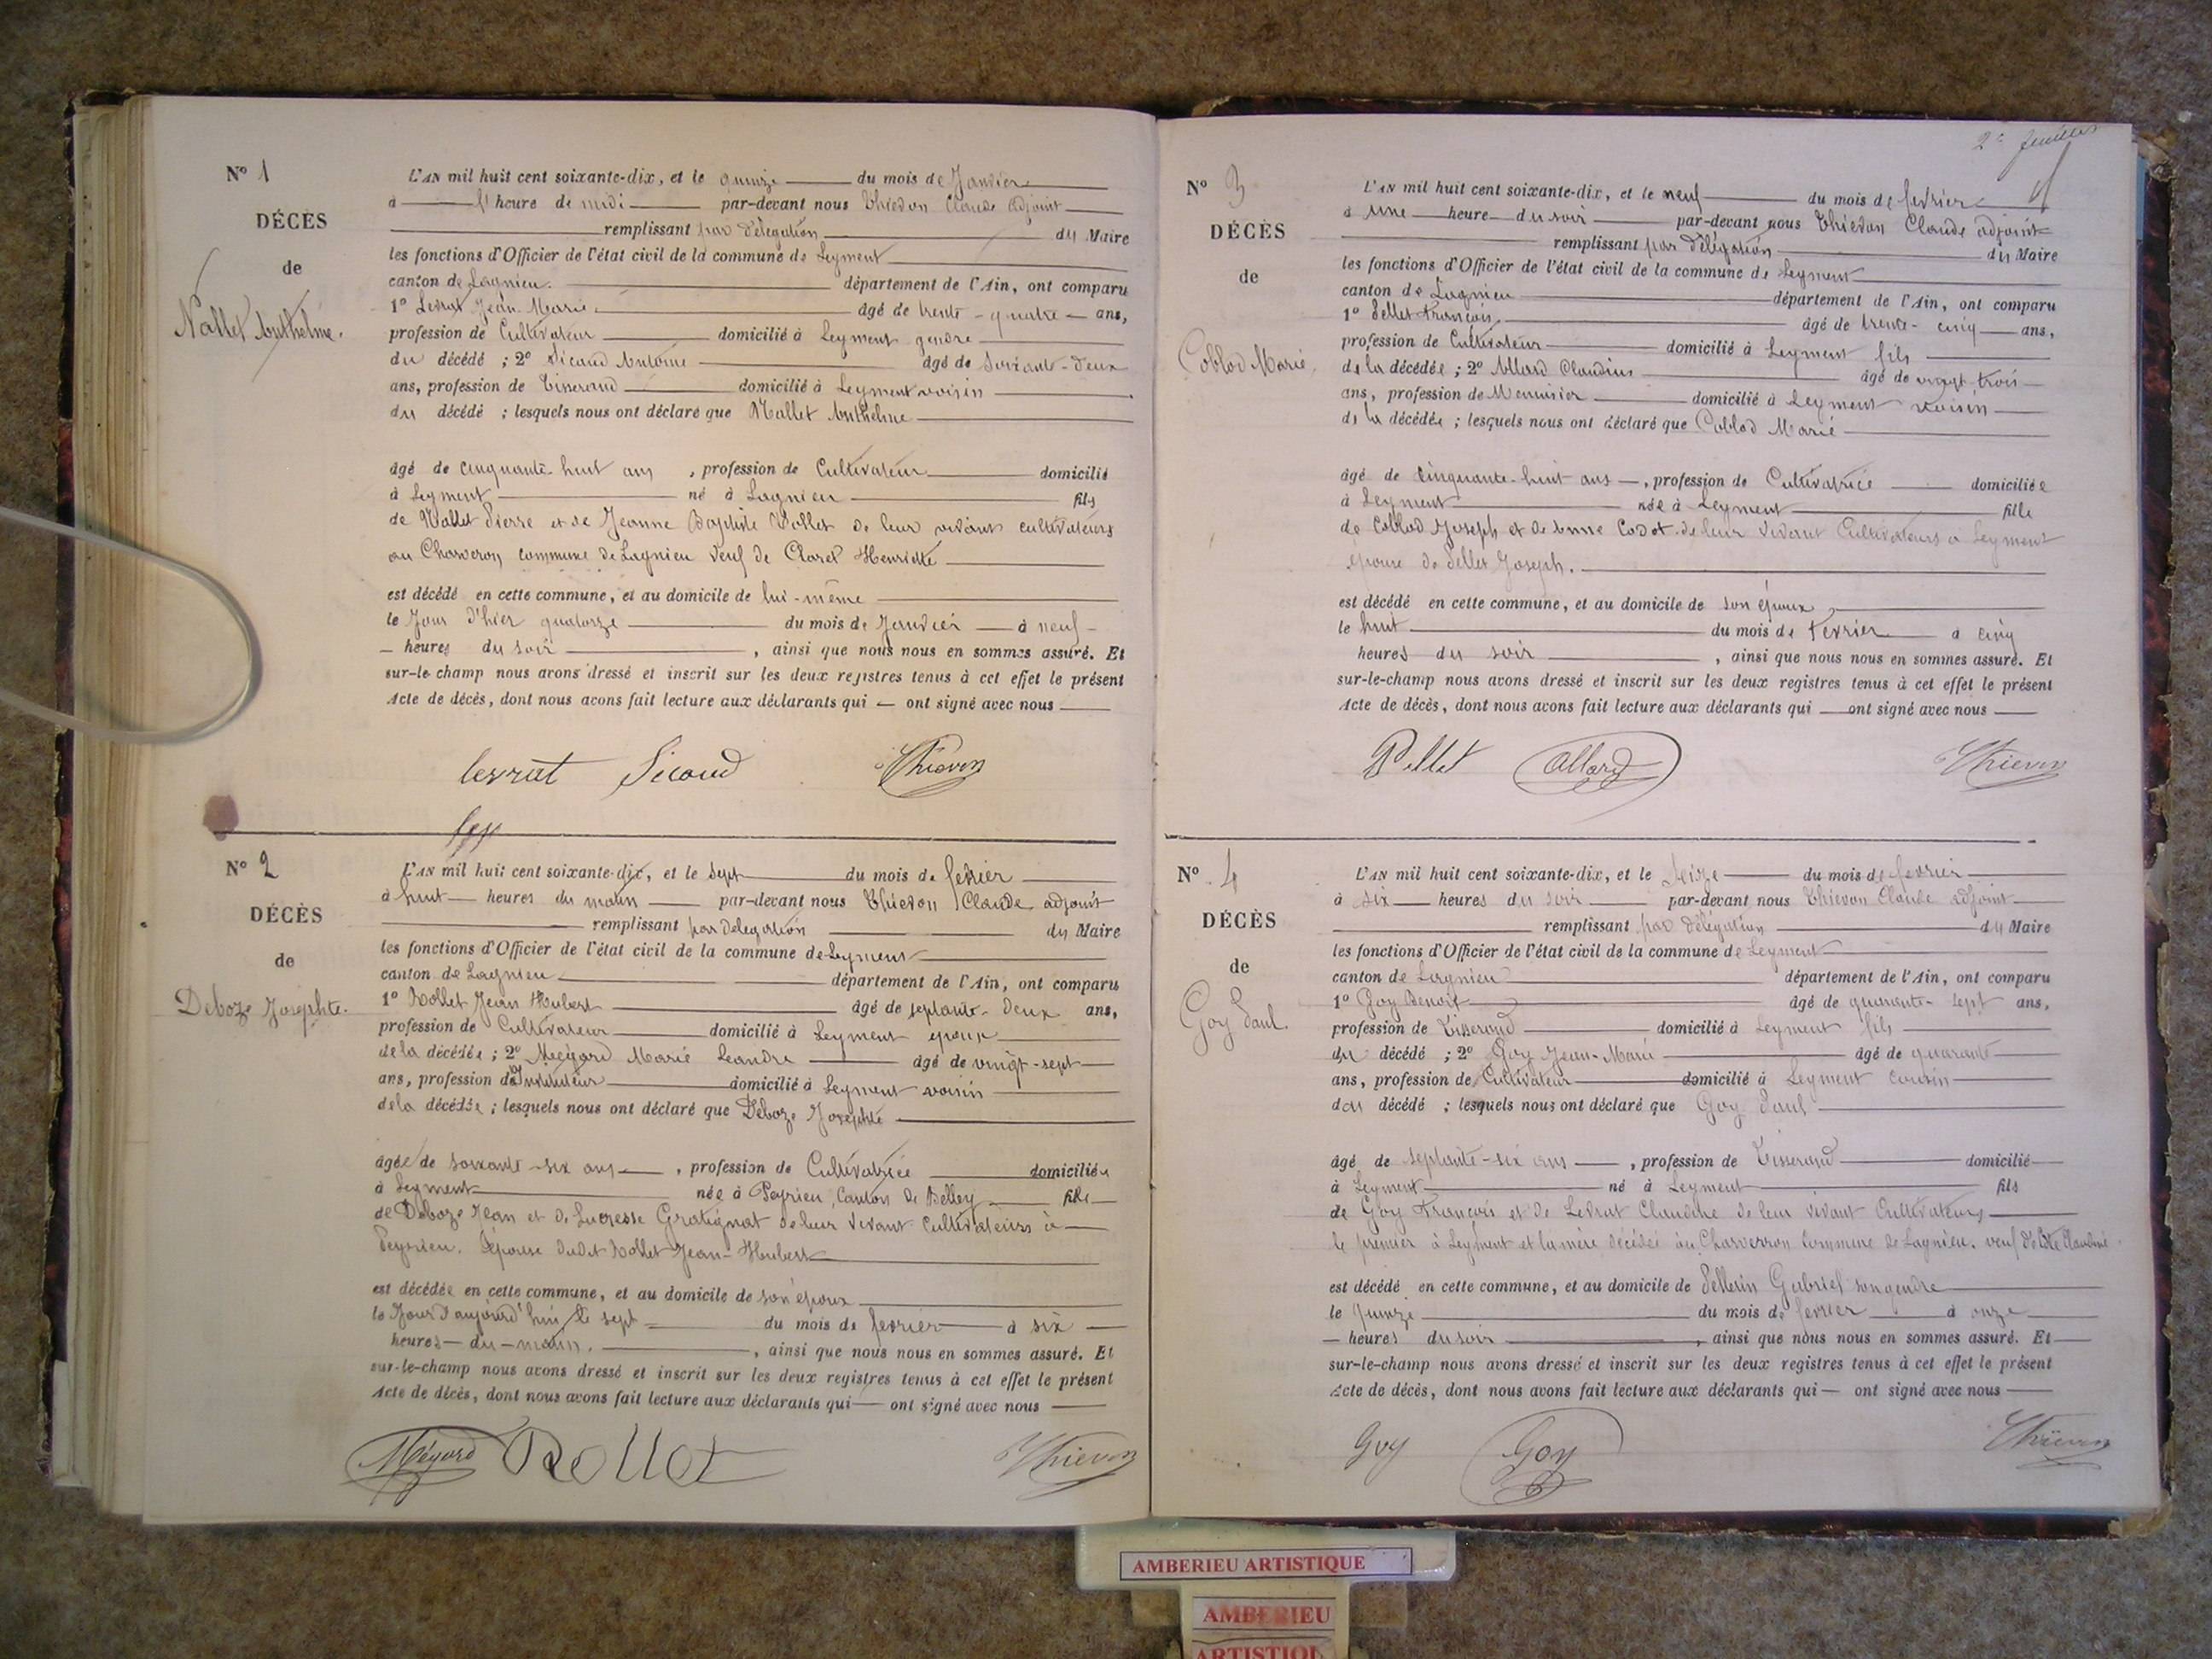 Nº 1
DÉCÈS
de
Nallet Anthelme.
L'AN mil huit cent soixante-dix, et le quinze du mois de Janvier
à l'heure de midi par-devant nous Thievon Claude adjoint
remplissant par délégation du Maire
les fonctions d'Officier de l'état civil de la commune de Leyment
canton de Lagnieu département de l'Ain, ont comparu
1º Levrat Jean Marie âgé de trente-quatre ans,
profession de Cultivateur domicilié à Leyment gendre
du décédé ; 2º Sicaud Antoine âgé de soixante-deux
ans, profession de Tisserand domicilié à Leyment voisin
du décédé ; lesquels nous ont déclaré que Nallet Anthelme
âgé de cinquante-huit ans, profession de Cultivateur domicilié
à Leyment né à Lagnieu fils
de Nallet Pierre et de Jeanne Baptiste de leur vivant cultivateurs
au Charveron commune de Lagnieu veuf de Claret Henriette
est décédé en cette commune, et au domicile de lui-même
le Jour d'hier quatorze du mois de Janvier à neuf
heures du soir, ainsi que nous nous en sommes assuré. Et
sur-le-champ nous avons dressé et inscrit sur les deux registres tenus à cet effet le présent
Acte de décès, dont nous avons fait lecture aux déclarants qui — ont signé avec nous
levrat Sicaud Thievon
Nº 2
DÉCÈS
de
Deboze Josephte.
L'AN mil huit cent soixante-dix, et le sept du mois de fevrier
à huit heures du matin par-devant nous Thievon Claude adjoint
remplissant par délégation du Maire
les fonctions d'Officier de l'état civil de la commune de Leyment
canton de Lagnieu département de l'Ain, ont comparu
1º Rollet Jean Hubert âgé de septante-deux ans,
profession de Cultivateur domicilié à Leyment epoux
de la décédée ; 2º Mégard Marie Leandre âgé de vingt-sept
ans, profession d'Instituteur domicilié à Leyment voisin
de la décédée ; lesquels nous ont déclaré que Deboze Josephte
âgée de soixante-six ans, profession de Cultivatrice domiciliée
à Leyment née à Peyrieu, Canton de Belley fille
de Deboze Jean et de Lucresse Gratignat de leur vivant cultivateurs à
Peyrieu. Épouse dudit Rollet Jean-Hubert
est décédée en cette commune, et au domicile de son époux
le Jour d'aujourd'hui le sept du mois de fevrier à six
heures du matin, ainsi que nous nous en sommes assuré. Et
sur-le-champ nous avons dressé et inscrit sur les deux registres tenus à cet effet le présent
Acte de décès, dont nous avons fait lecture aux déclarants qui — ont signé avec nous
Mégard Rollet Thievon
2e feuillet
Nº 3
DÉCÈS
de
Coblod Marie
L'AN mil huit cent soixante-dix, et le neuf du mois de fevrier
à une heure du soir par-devant nous Thievon Claude adjoint
remplissant par délégation du Maire
les fonctions d'Officier de l'état civil de la commune de Leyment
canton de Lagnieu département de l'Ain, ont comparu
1º Pellet François, âgé de trente-cinq ans,
profession de Cultivateur domicilié à Leyment fils
de la décédée ; 2º Allard Claudius âgé de vingt-trois
ans, profession de Menuisier domicilié à Leyment voisin
de la décédée ; lesquels nous ont déclaré que Coblod Marie
âgé de Cinquante-huit ans, profession de Cultivatrice domiciliée
à Leyment née à Leyment fille
de Coblod Joseph et de Anne Cadot de leur vivant Cultivateurs à Leyment
épouse de Pellet Joseph.
est décédé en cette commune, et au domicile de son époux
le huit du mois de Fevrier à cinq
heures du soir, ainsi que nous nous en sommes assuré. Et
sur-le-champ nous avons dressé et inscrit sur les deux registres tenus à cet effet le présent
Acte de décès, dont nous avons fait lecture aux déclarants qui — ont signé avec nous
Pellet Allard Thievon
Nº 4
DÉCÈS
de
Goy Paul.
L'AN mil huit cent soixante-dix, et le seize du mois de fevrier
à six heures du soir par-devant nous Thievon Claude adjoint
remplissant par délégation du Maire
les fonctions d'Officier de l'état civil de la commune de Leyment
canton de Lagnieu département de l'Ain, ont comparu
1º Goy Benoît âgé de quarante-sept ans,
profession de Tisserand domicilié à Leyment fils
du décédé ; 2º Goy Jean-Marie âgé de quarante
ans, profession de Cultivateur domicilié à Leyment cousin
du décédé ; lesquels nous ont déclaré que Goy Paul
âgé de septante-six ans, profession de Tisserand domicilié
à Leyment né à Leyment fils
de Goy François et de Levrat Claudine de leur vivant Cultivateurs
le premier à Leyment et la mère décédée au Charverron Commune de Lagnieu. veuf de Claudine
est décédé en cette commune, et au domicile de Pellerin Gabriel son gendre
le quinze du mois de fevrier à onze
heures du soir, ainsi que nous nous en sommes assuré. Et
sur-le-champ nous avons dressé et inscrit sur les deux registres tenus à cet effet le présent
Acte de décès, dont nous avons fait lecture aux déclarants qui — ont signé avec nous
Goy Goy Thievon
AMBERIEU ARTISTIQUE
AMBERIEU